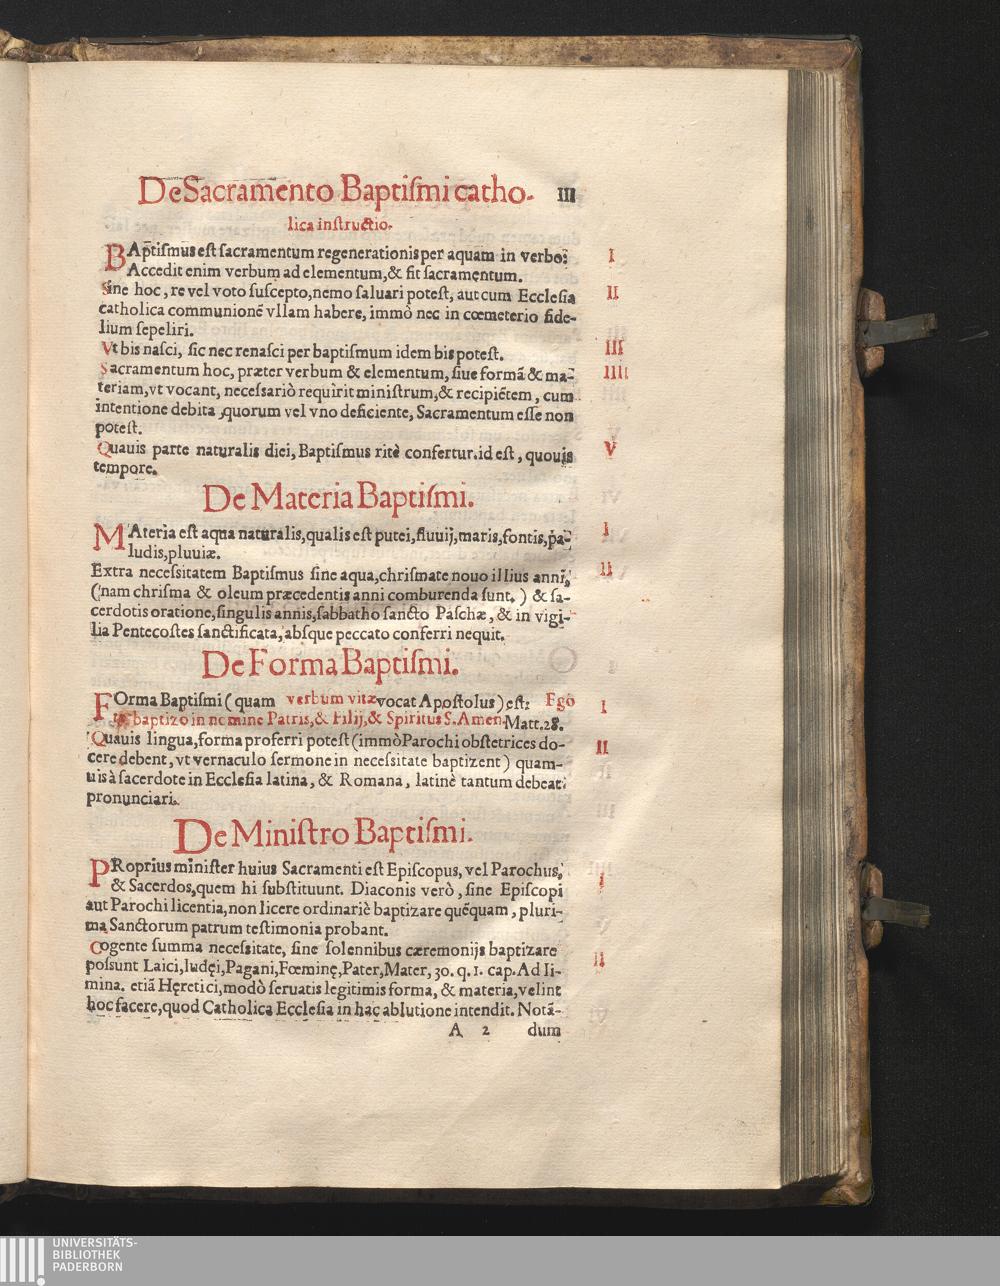 De Sacramento Baptiſmi catho- III
lica inſtructio.
BAptiſmus eſt ſacramentum regenerationis per aquam in verbo: I
Accedit enim verbum ad elementum, & fit ſacramentum.
Sine hoc, re vel voto ſuſcepto, nemo ſaluari poteſt, aut cum Eccleſia II
catholica communionē vllam habere, immò nec in cœmeterio fide-
lium ſepeliri.
Vt bis naſci, ſic nec renaſci per baptiſmum idem bis poteſt. III
Sacramentum hoc, præter verbum & elementum, ſiue formā & ma- IIII
teriam, vt vocant, neceſſariò requirit miniſtrum, & recipiētem, cum
intentione debita, quorum vel vno deficiente, Sacramentum eſſe non
poteſt.
Quauis parte naturalis diei, Baptiſmus ritè confertur. id eſt, quouis V
tempore.
De Materia Baptiſmi.
MAteria eſt aqua naturalis, qualis eſt putei, fluuij, maris, fontis, pa- I
ludis, pluuiæ.
Extra neceſsitatem Baptiſmus ſine aqua, chriſmate nouo illius anni, II
(nam chriſma & oleum præcedentis anni comburenda ſunt.) & ſa-
cerdotis oratione, ſingulis annis, ſabbatho ſancto Paſchæ, & in vigi-
lia Pentecoſtes ſanctificata, abſque peccato conferri nequit.
De Forma Baptiſmi.
FOrma Baptiſmi (quam verbum vitæ vocat Apoſtolus) eſt: Ego I
te baptizo in nomine Patris, & Filij, & Spiritus S. Amen. Matt. 28.
Quauis lingua, forma proferri poteſt (immò Parochi obſtetrices do- II
cere debent, vt vernaculo ſermone in neceſsitate baptizent) quam-
uis à ſacerdote in Eccleſia latina, & Romana, latinè tantum debeat
pronunciari.
De Miniſtro Baptiſmi.
PRoprius miniſter huius Sacramenti eſt Epiſcopus, vel Parochus, I
& Sacerdos, quem hi ſubſtituunt. Diaconis verò, ſine Epiſcopi
aut Parochi licentia, non licere ordinariè baptizare quēquam, pluri-
ma Sanctorum patrum teſtimonia probant.
Cogente ſumma neceſsitate, ſine ſolennibus cæremonijs baptizare II
poſsunt Laici, Iudęi, Pagani, Fœminę, Pater, Mater, 30. q. 1. cap. Ad li-
mina. etiā Hęretici, modò ſeruatis legitimis forma, & materia, velint
hoc facere, quod Catholica Eccleſia in hac ablutione intendit. Notā-
A 2 dum
UNIVERSITÄTS-
BIBLIOTHEK
PADERBORN